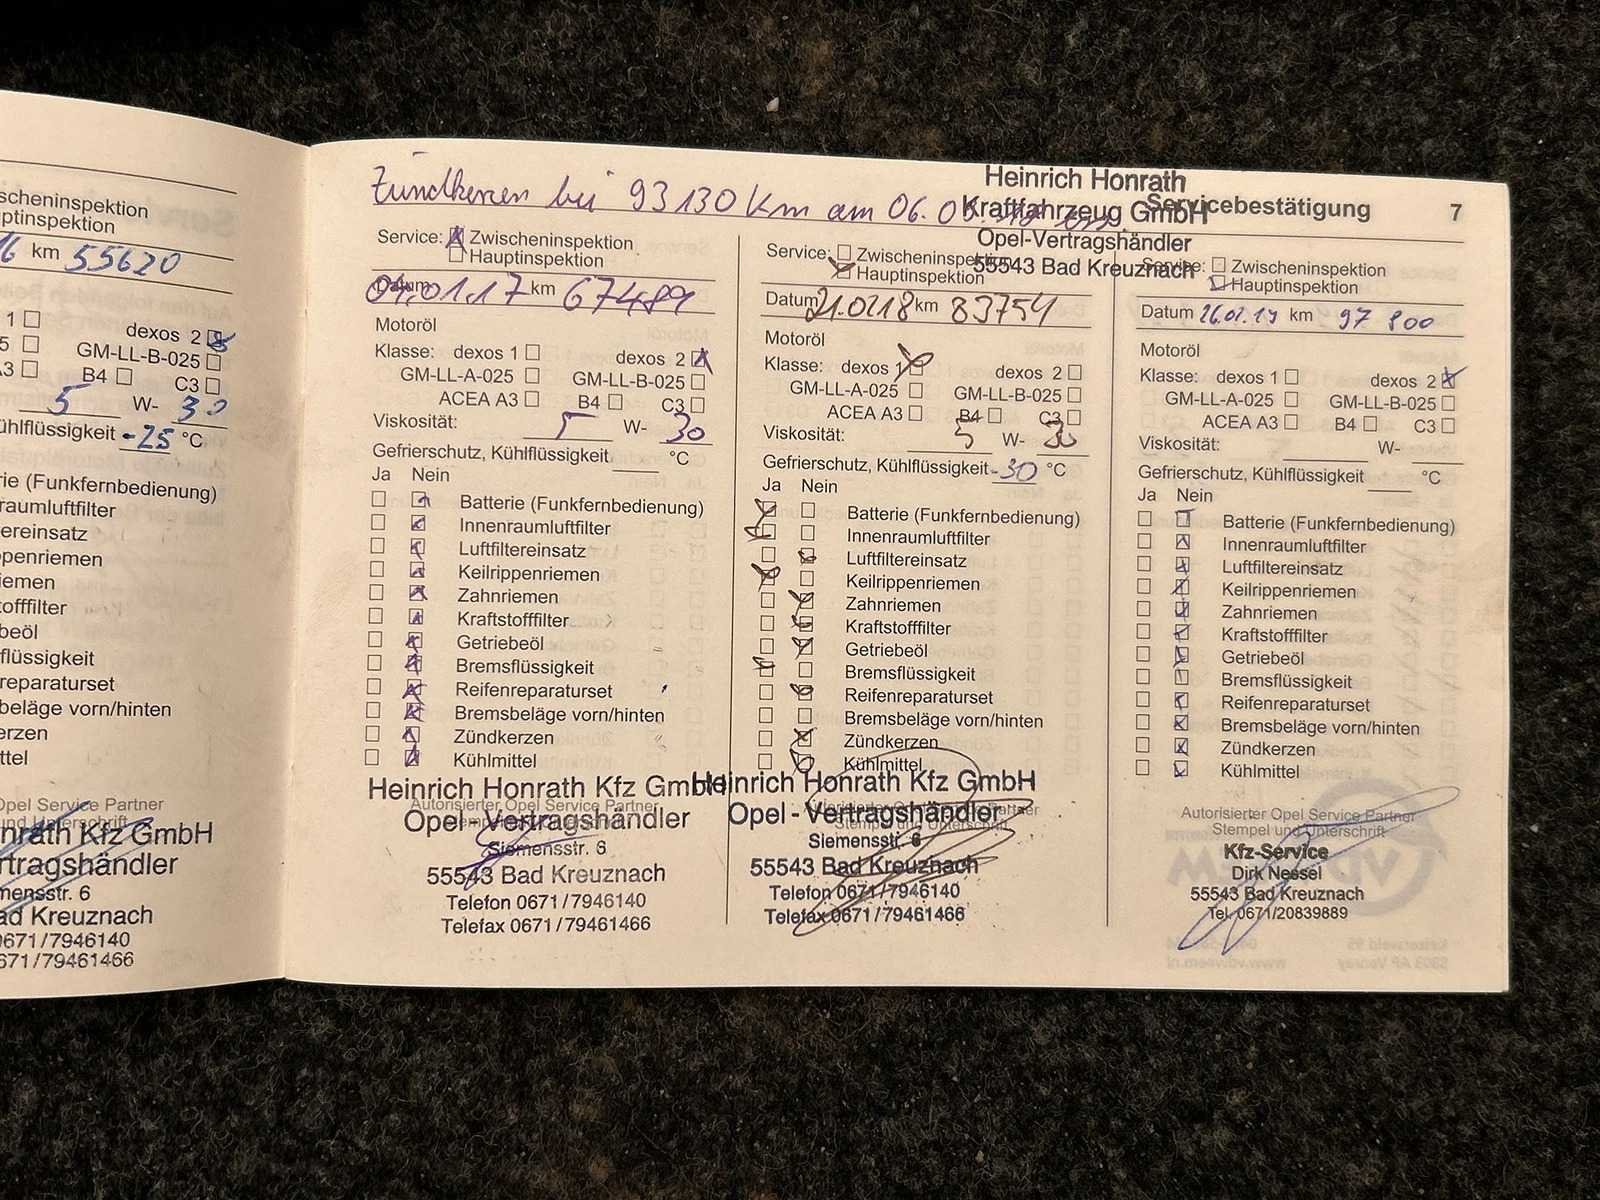 scheninspektion
uptinspektion
6 km 55620
1 dexos 2
5 GM-LL-B-025
A3 B4 C3
5 W- 30
ühlflüssigkeit -25 °C
rie (Funkfernbedienung)
raumluftfilter
ereinsatz
ppenriemen
iemen
tofffilter
beöl
flüssigkeit
reparaturset
beläge vorn/hinten
erzen
ttel
Opel Service Partner
und Unterschrift
nrath Kfz GmbH
rtragshändler
mensstr. 6
ad Kreuznach
0671/7946140
671/79461466
Zündkerzen bei 93130 Km am 06.
Heinrich Honrath
Kraftfahrzeug GmbH
Opel-Vertragshändler
55543 Bad Kreuznach
Servicebestätigung 7
Service: Zwischeninspektion
Hauptinspektion
Datum 04.01.17 km 67489
Motoröl
Klasse: dexos 1 dexos 2
GM-LL-A-025 GM-LL-B-025
ACEA A3 B4 C3
Viskosität: 5 W- 30
Gefrierschutz, Kühlflüssigkeit °C
Ja Nein
Batterie (Funkfernbedienung)
Innenraumluftfilter
Luftfiltereinsatz
Keilrippenriemen
Zahnriemen
Kraftstofffilter
Getriebeöl
Bremsflüssigkeit
Reifenreparaturset
Bremsbeläge vorn/hinten
Zündkerzen
Kühlmittel
Autorisierter Opel Service Partner
Heinrich Honrath Kfz GmbH
Opel - Vertragshändler
Siemensstr. 6
55543 Bad Kreuznach
Telefon 0671/7946140
Telefax 0671/79461466
Service: Zwischeninspektion
Hauptinspektion
Datum 21.0218 km 83754
Motoröl
Klasse: dexos 1 dexos 2
GM-LL-A-025 GM-LL-B-025
ACEA A3 B4 C3
Viskosität: 5 W- 30
Gefrierschutz, Kühlflüssigkeit -30 °C
Ja Nein
Batterie (Funkfernbedienung)
Innenraumluftfilter
Luftfiltereinsatz
Keilrippenriemen
Zahnriemen
Kraftstofffilter
Getriebeöl
Bremsflüssigkeit
Reifenreparaturset
Bremsbeläge vorn/hinten
Zündkerzen
Kühlmittel
Autorisierter Opel Service Partner
Stempel und Unterschrift
Heinrich Honrath Kfz GmbH
Opel - Vertragshändler
Siemensstr. 6
55543 Bad Kreuznach
Telefon 0671/7946140
Telefax 0671/79461466
Service: Zwischeninspektion
Hauptinspektion
Datum 26.02.19 km 97 800
Motoröl
Klasse: dexos 1 dexos 2
GM-LL-A-025 GM-LL-B-025
ACEA A3 B4 C3
Viskosität: W-
Gefrierschutz, Kühlflüssigkeit °C
Ja Nein
Batterie (Funkfernbedienung)
Innenraumluftfilter
Luftfiltereinsatz
Keilrippenriemen
Zahnriemen
Kraftstofffilter
Getriebeöl
Bremsflüssigkeit
Reifenreparaturset
Bremsbeläge vorn/hinten
Zündkerzen
Kühlmittel
Autorisierter Opel Service Partner
Stempel und Unterschrift
Kfz-Service
Dirk Nessel
55543 Bad Kreuznach
Tel. 0671/20839889